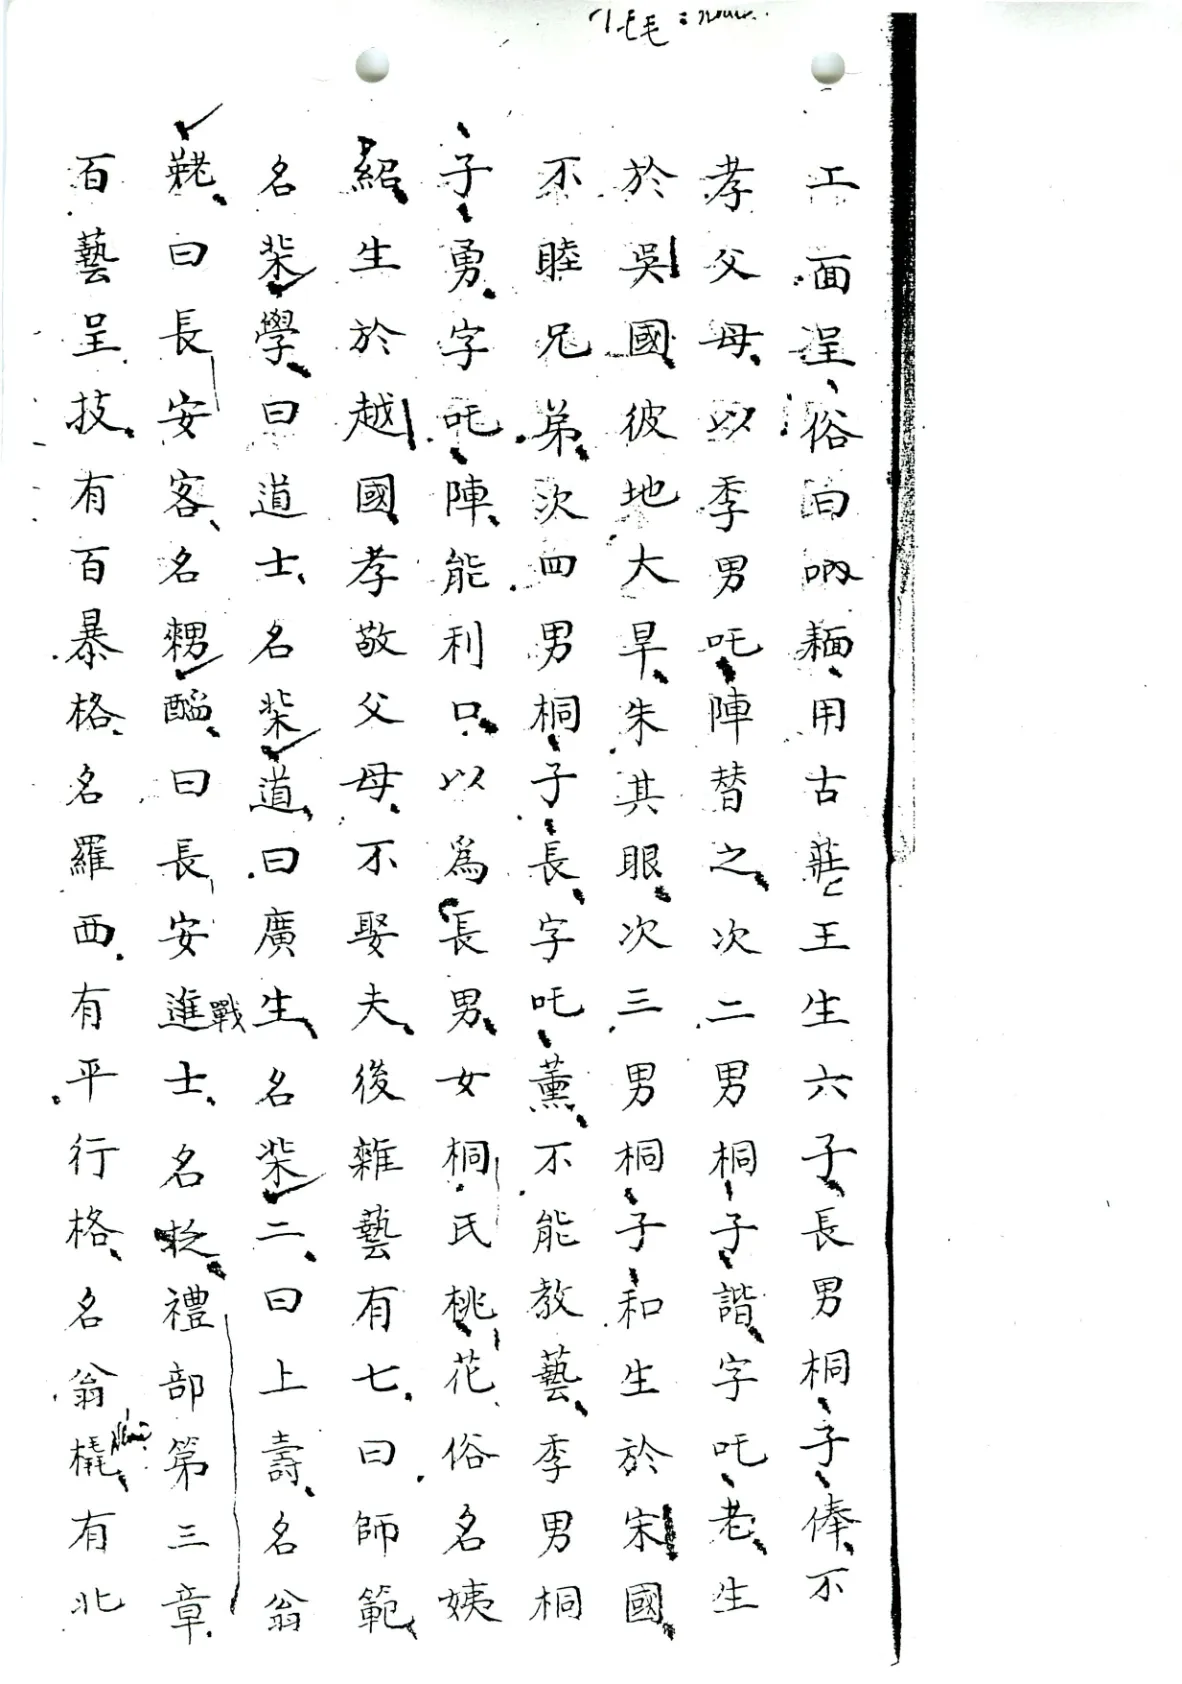 工面呈俗曰𠰺麵用古莊王生六子長男桐子俸不
孝父母以季男吒陣替之次二男桐子諧字吒老生
於吳國彼地大旱朱其眼次三男桐子和生於宋國
不睦兄弟次四男桐子長字吒薰不能教藝季男桐
子勇字吒陣能利口以爲長男女桐氏桃花俗名姨
紹生於越國孝敬父母不娶夫後雜藝有七曰師範
名槊學曰道士名槊道曰廣生名槊二曰上壽名翁
曰長安客名醞曰長安進戰士名禮部第三章
百藝呈技有百暴格名羅西有平行格名翁橇有北